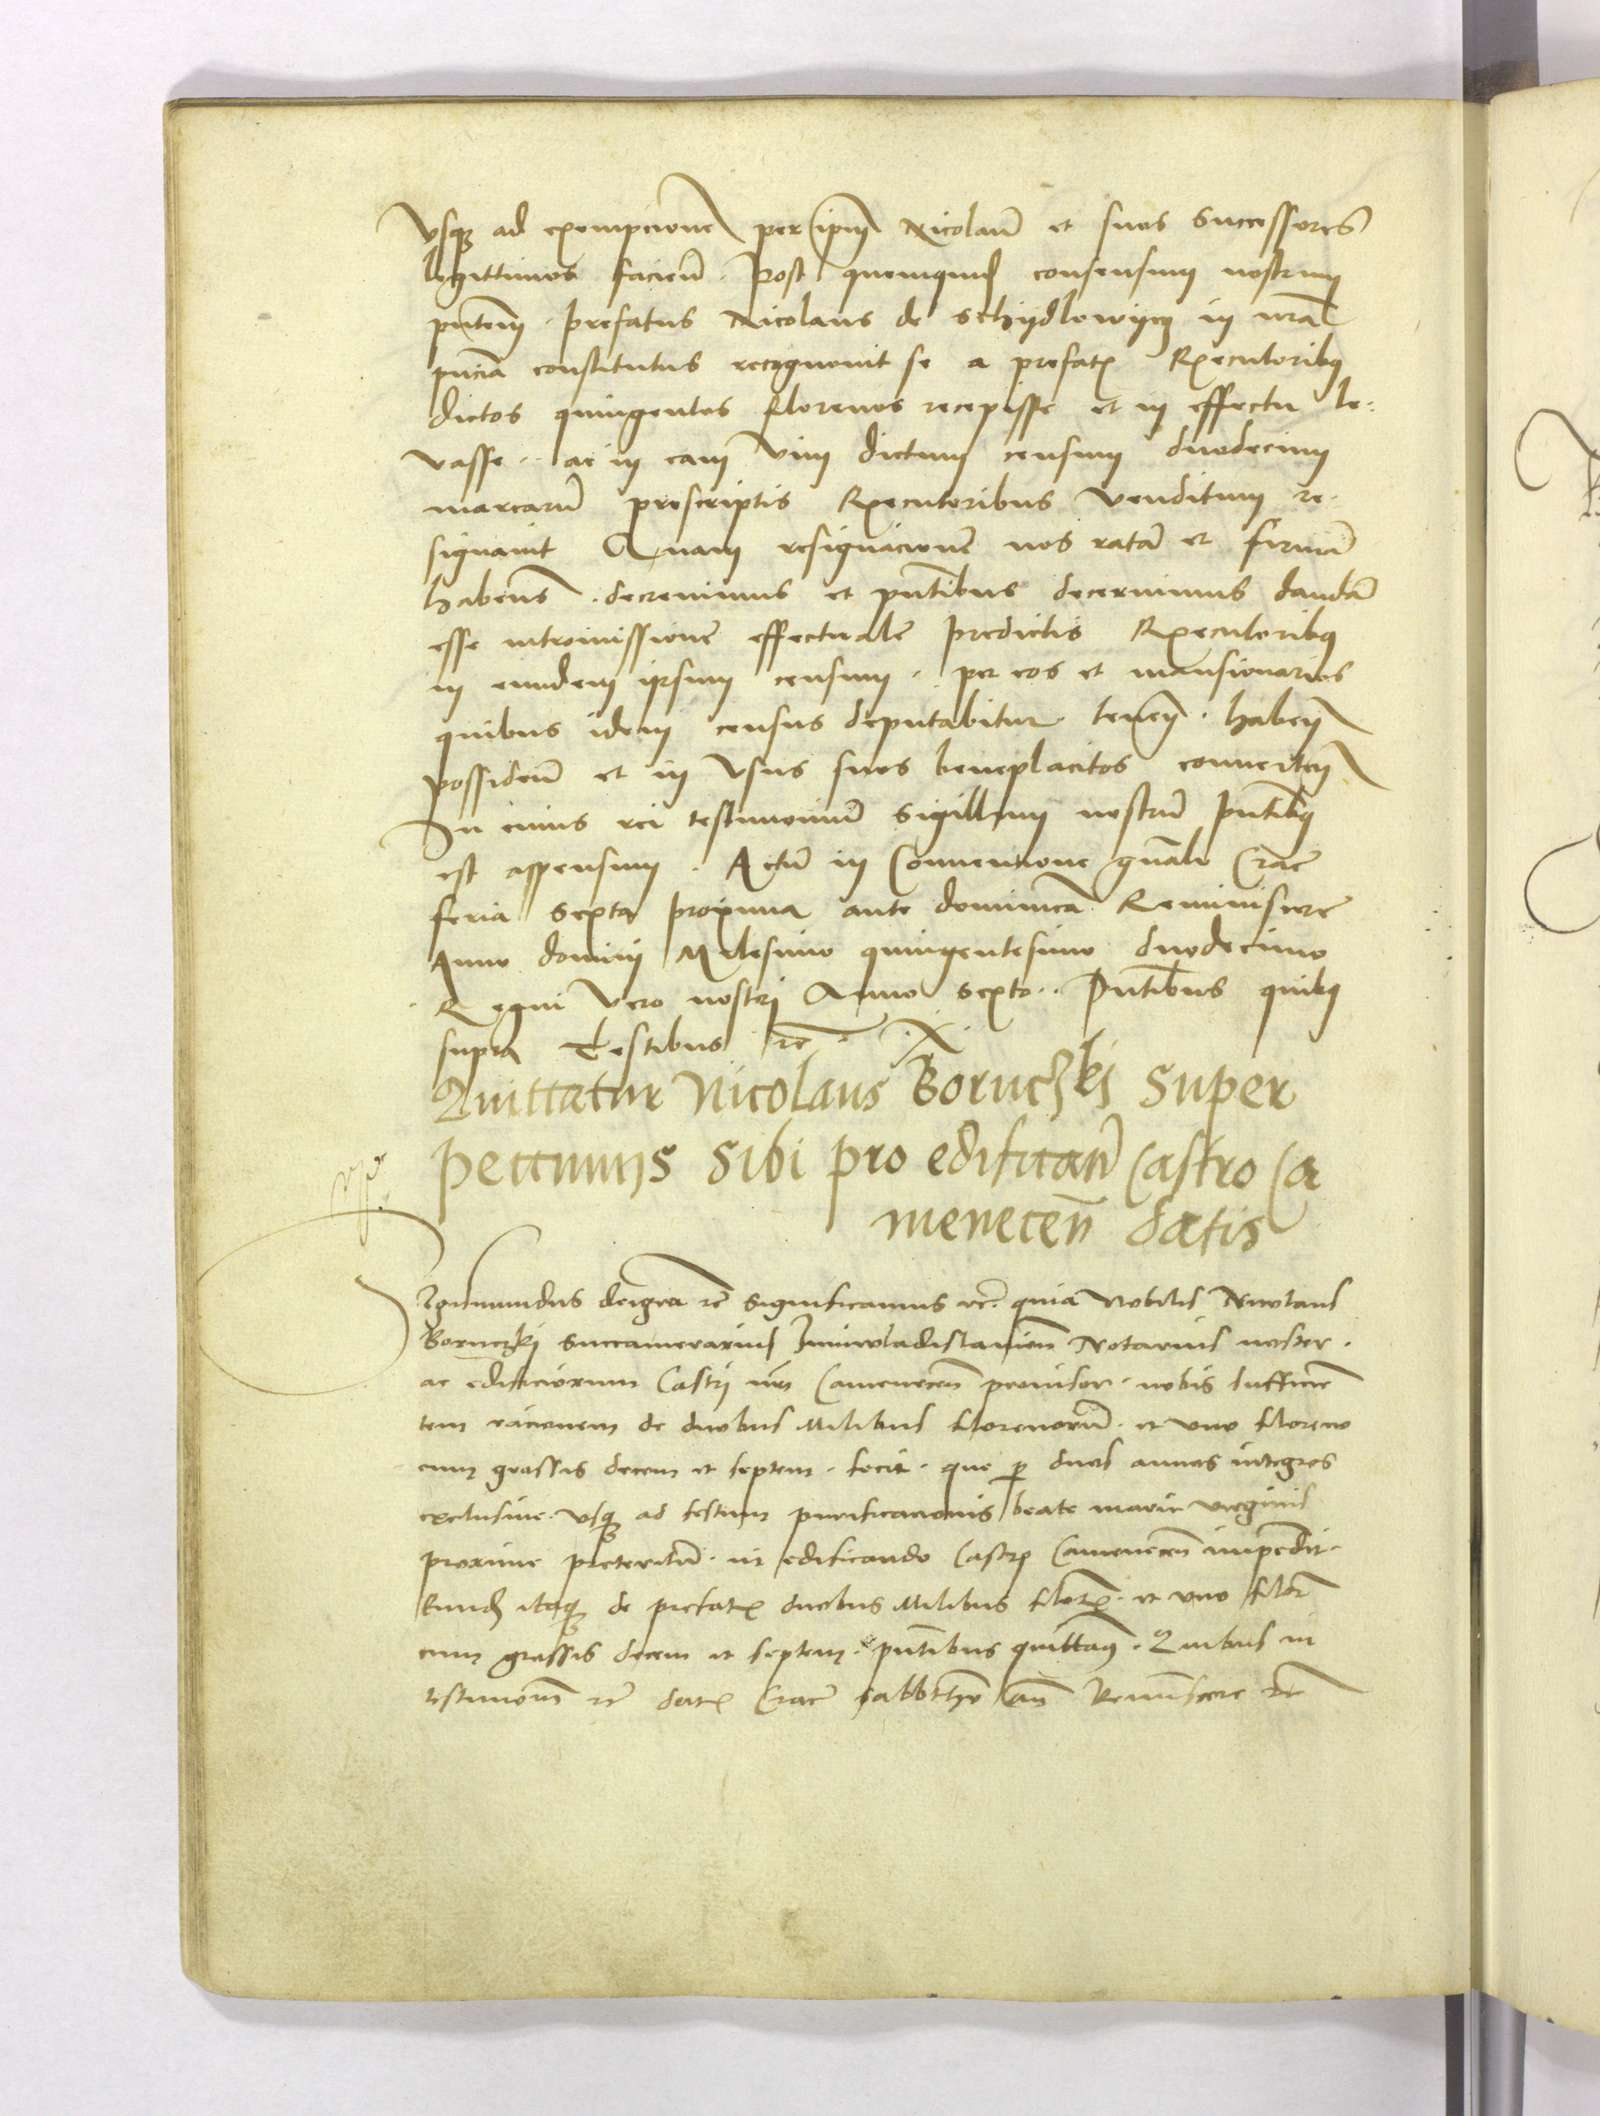 Vsq ad exempcione per ipm Nicolau et suos successores
legittimos faciend. Post quemquid consensum nostrum
pntem. prefatus Nicolaus de Schijdlowijcz in nra
pncia constitutus recognouit se a prefatis Executoribq
dictos quingentos florenos recepisse et in effectu le:
vasse. ac in eam vim dictum censum duodecim
marcaru prescriptis Executoribus venditum re-
signauit Quam resignacione nos rata et firma
habens. decreuimus et pntibus decernimus danda
esse intromissione effectuale predictis Executoribq
in eundem ipsum censum. per eos et mansionarios
quibus idem census deputabitur. tenen. haben
possiden et in vsus suos beneplacitos conuerten
In cuius rei testimoniu sigillum nostru pntibq
est appensum. Actu in Conuentione gnali Crac
feria sexta proxima ante dominica Reminiscere
Anno domini Milesimo quingentesimo duodecimo
Regni vero nostri Anno sexto. Pntibus quibq
supra testibus rc.
Quittatur Nicolaus Boruczkj super
pecunijs sibi pro edifican Castro Ca
menecen datis
Sigismundus dei gra rc significamus rc. quia Nobilis Nicolaus
Boruczkj Succamerarius Juniwladislauien Notarius noster.
ac edificiorum Castrj nri Camenecen prouisor. nobis sufficien
tem racionem de duobus Milibus florenoru. et vno floreno
cum grossis decem et septem. fecit. que p duos annos integros
exclusiue. vsq ad festum purificacionis beate marie virginis
proxime preteritu. in edificando Castro Camenecen impendit.
Eund itaq de prefatis duobus Milibus floren. et vno flor
cum grossis decem et septem. pntibus quittamq. Quibus in
testimoniu rc datis Crac sabbatho an Reminiscere rc